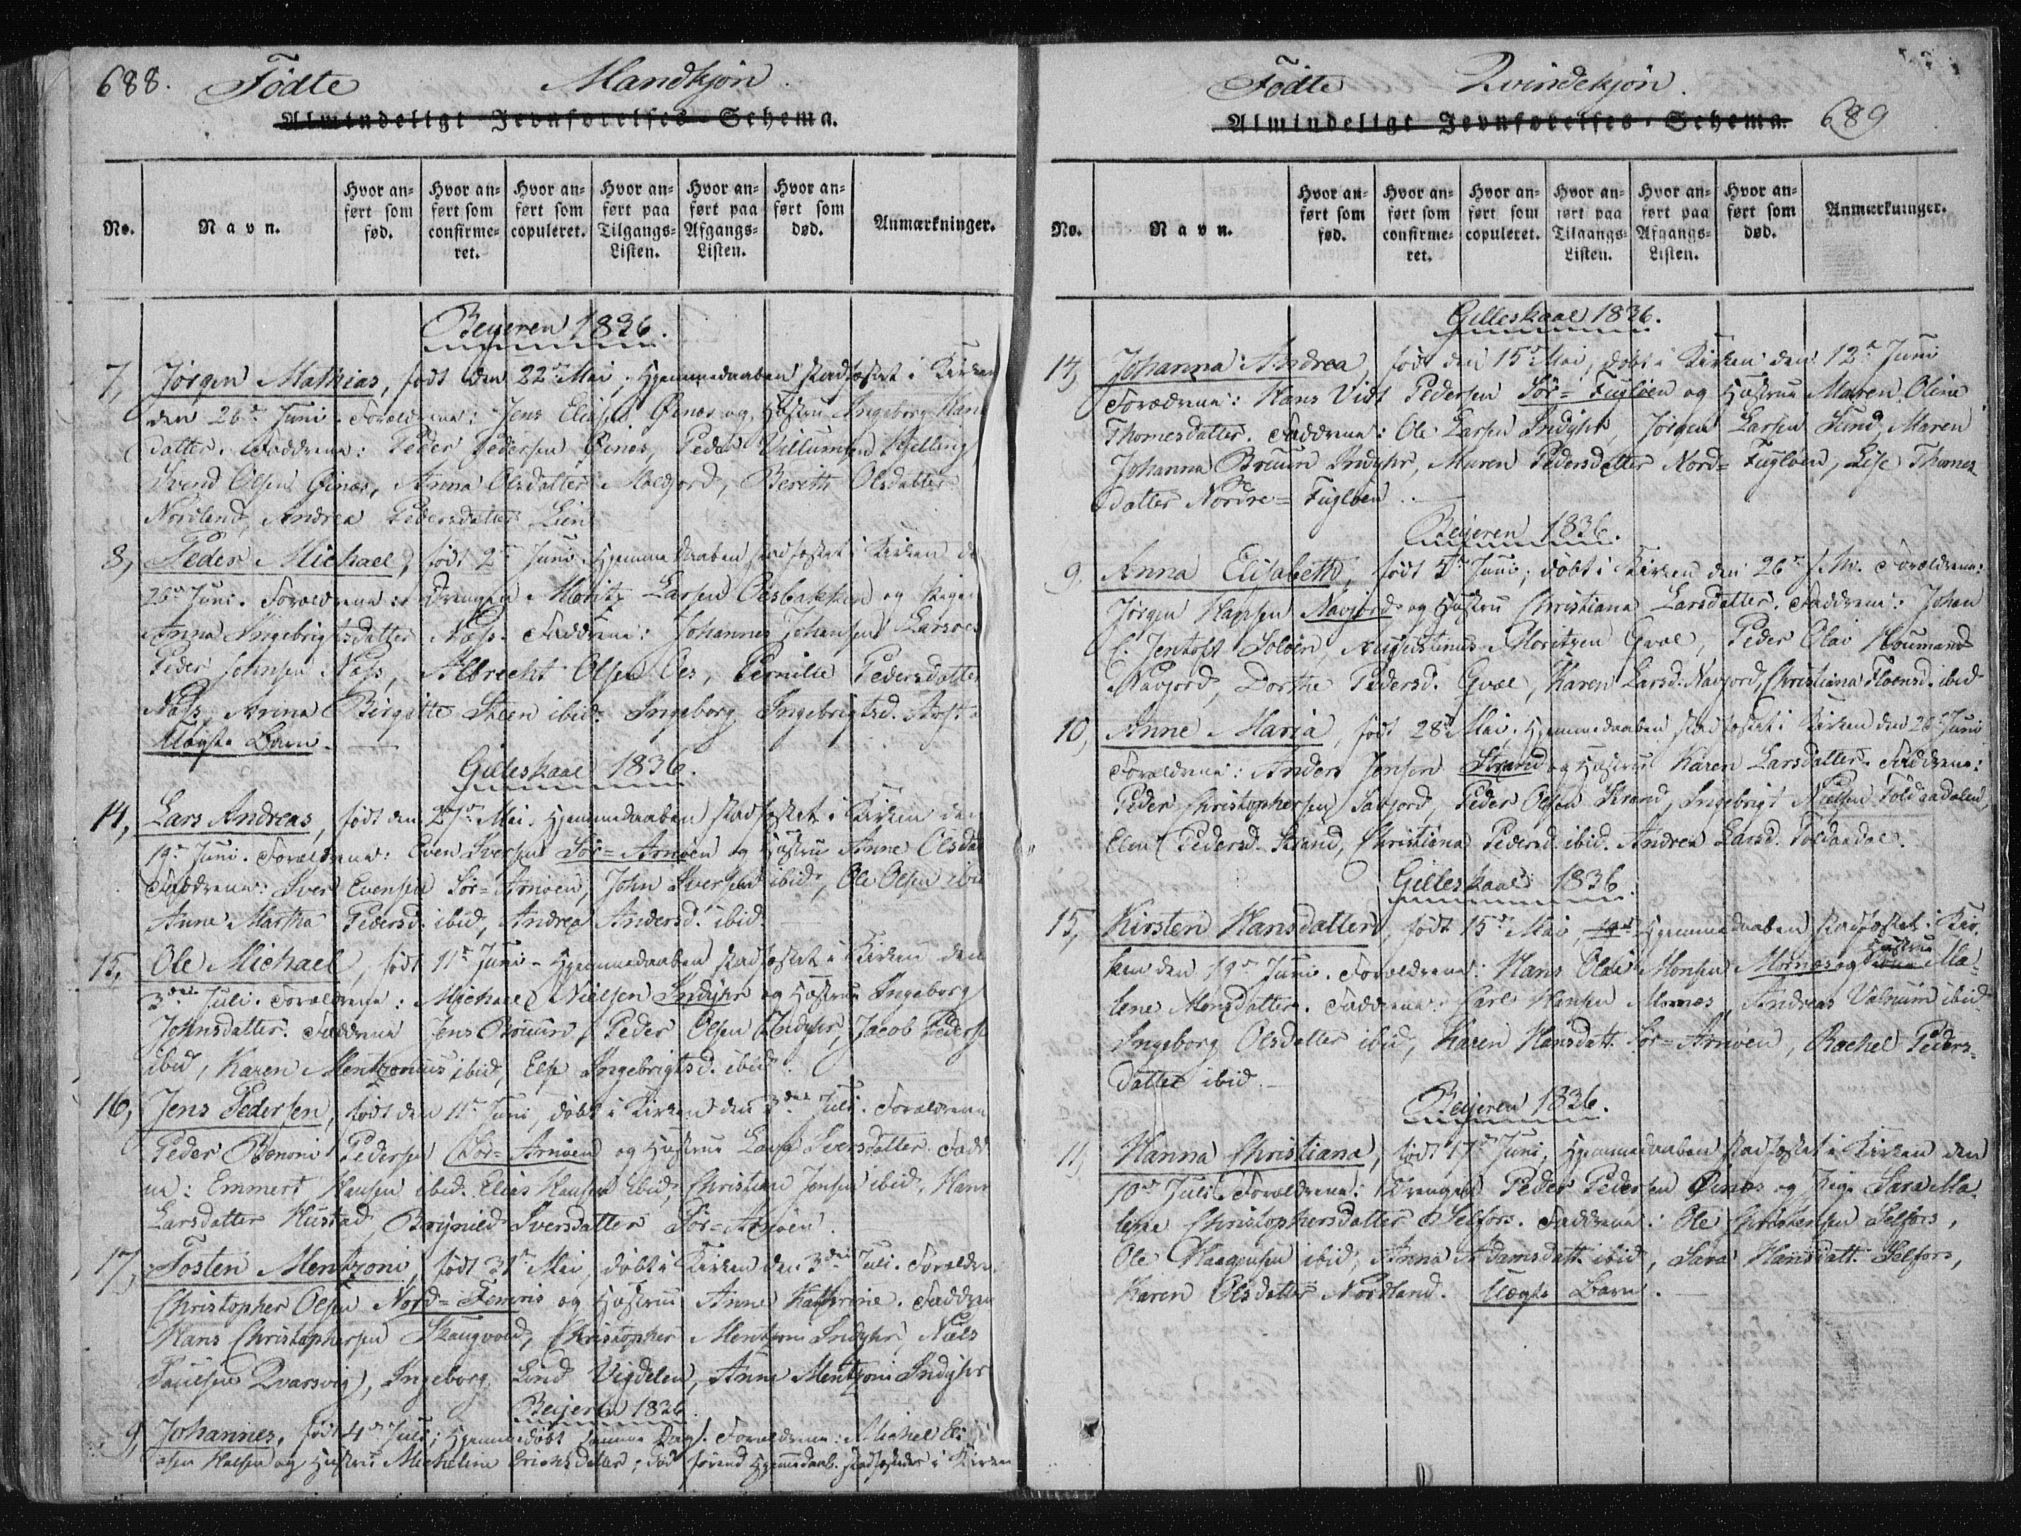 688. Födte Mandkjøn.
Almindeligt Jevnførelses-Schema.
No. Navn. Hvor anført som fød. Hvor anført som confirmeret. Hvor anført som copuleret. Hvor anført paa Tilgangs-Listen. Hvor anført paa Afgangs-Listen. Hvor anført som død. Anmærkninger.
Beijeren 1836.
7, Jørgen Mathias, født den 22de Mai, Hjemmedaaben stadfæstet i Kirken
den 26de Juni. Forældrene: Jens Eliasen Øinæs og Hustru Ingeborg Hans
datter. Faddrene: Peder Pedersen Øinæs, Peder Villumsen Kjelling
Svend Olsen Øinæs, Anna Olsdatter Moldjord, Bereth Olsdatter
Nordland, Andrea Pedersdatter Lund
8, Peder Michael, født 2den Juni. Hjemmedaaben stadfæstet i Kirken de
26de Juni. Forældrene: Drengen Moritz Larsen Oesbakken og Pigen
Anna Ingebrigtsdatter Næss. Faddrene: Johannes Johansen Larsos
Peder Johnsen Næss, Albrecht Olsen Oes, Pernille Pedersdatter
Næss, Anna Birgitte Steen ibid. Ingeborg Ingebrigtsd.
Uægte Barn.
Gilleskaal 1836.
14, Lars Andreas, født den 27de Mai. Hjemmedaaben stadfæstet i Kirken den
19de Juni. Forældrene: Even Iversen Sör=Arnöen og Hustru Anne Olsdat
Faddrene: Iver Evensen Sör=Arnöen, John Iversen ibid, Ole Olsen ibid
Anne Martha Pedersd. ibid, Andrea Andersd. ibid.
15, Ole Michael, født 11te Juni. Hjemmedaaben stadfæstet i Kirken den
3die Juli. Forældrene: Michael Nielsen Indyhr og Hustru Ingeborg
Johnsdatter. Faddrene Jens Bruun, Peder Olsen Indyhr, Jacob Pederse
ibid, Karen Mentzonius ibid, Else Ingebrigtsd. ibid.
16, Jens Pedersen, født den 11te Juni, döbt i Kirken den 3die Juli. Forældrene
Peder Benoni Pedersen Sör=Arnöen og Hustrue Iversdatter. Fadd
ne: Emmert Hansen ibid. Elias Hansen ibid, Christian Jensen ibid, Hann
Larsdatter Hustad, Brynild Iversdatter Sör=Arnöen.
17, Tosten Mentzoni, født 31te Mai, döbt i Kirken den 3die Juli. Forældre
Christopher Olsen Nord=Femris og Hustrue Anne Kathrine. Faddren
Hans Christophersen Skaugvold, Christopher Mentzoni Indyhr, Niels
Paulsen Qvarsvig, Ingeborg Lind Vigdelen, Anne Mentzoni Indyhr
Beijeren 1836.
9, Johannes, født 4de Juli; Hjemmedöbt samme Dag. Forældrene: Michel Eli
asen og Hustru Micheline Erichsdatter; död förend Hjemmedaab. stadfæstedes i Kirken
Födte Qvindekjön.
Almindeligt Jevnførelses-Schema. 689
No. Navn. Hvor anført som fød. Hvor anført som confirmeret. Hvor anført som copuleret. Hvor anført paa Tilgangs-Listen. Hvor anført paa Afgangs-Listen. Hvor anført som død. Anmærkninger.
Gilleskaal 1836.
14, Johanna Andrea, født den 15de Mai, döbt i Kirken den 12te Juni
Forældrene: Hans Vidt Pedersen Sör=Fuglöen og Hustrue Maren Oline
Thomesdatter. Faddrene: Ole Larsen Indyhr, Jörgen Larsen Sund, Maren
Johanna Bruun Indyhr, Maren Pedersdatter Nord=Fuglöen, Lise Thomes
datter Nordre=Fuglöen.
Beijeren 1836.
9, Anna Elisabeth, født 5te Juni, döbt i Kirken den 26de f. M. Forældrene:
Jörgen Hansen Navjord og Hustru Christiana Larsdatter. Faddrene: Johan
C. Jentoft Solöen, Augustinus Moritzen Gvæl, Peder Olai Houmand
Navjord, Dorthe Pedersd. Gvæl, Karen Larsd. Navjord, Christiana ibid
10, Anne Maria, født 28de Mai. Hjemmedaaben stadfæstet i Kirken den 26de Juni
Forældrene: Anders Jensen Strand og Hustrue Karen Larsdatter. Faddrene:
Peder Christophersen Savjord, Peder Olsen Strand, Ingebrigt Nielsen Toldaadalen,
Elen Pedersd. Strand, Christiana Pedersd. ibid. Andrea Larsd. Toldaadal.
Gilleskaal 1836.
15, Kirsten Hansdatter, født 15de Mai, Hjemmedaaben stadfæstet i Kir
ken den 19de Juni. Forældrene: Hans Olai Monsen Mornæs og Hustrue Ma-
lene Monsdatter. Faddrene: Carl Hansen Mornæs, Andreas Valnum ibid
Ingeborg Olsdatter ibid, Karen Hansdatt. Sör=Arnöen, Rachel Peders-
datter ibid.
Beijeren 1836.
11, Hanna Christiana, født 17de Juni, Hjemmedaaben stadfæstet i Kirken den
10de Juli. Forældrene: Drengen Peder Pedersen Øinæs og Pige Sara Ma-
lene Christophersdatter Selfors. Faddrene: Ole Christensen Selfors,
Ole Haagensen ibid, Anna Adamsdatt. ibid, Sara Hansdatt. Selfors,
Karen Olsdatter Nordland. Uægte Barn.